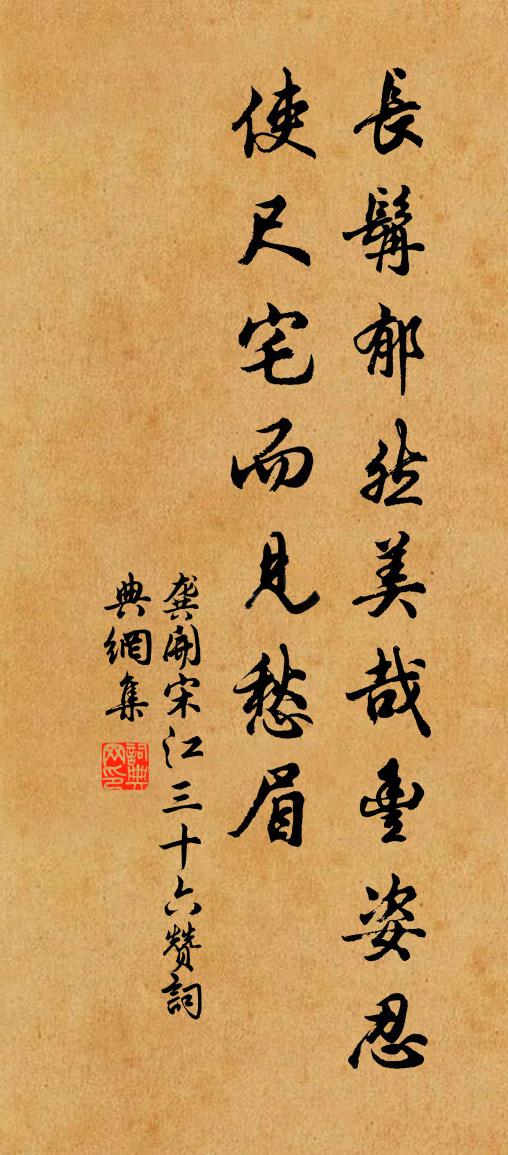 長髯郁然美哉豐姿忍
使尺宅而見愁眉
龔開宋江三十六贊詞
典網集
詞典網印